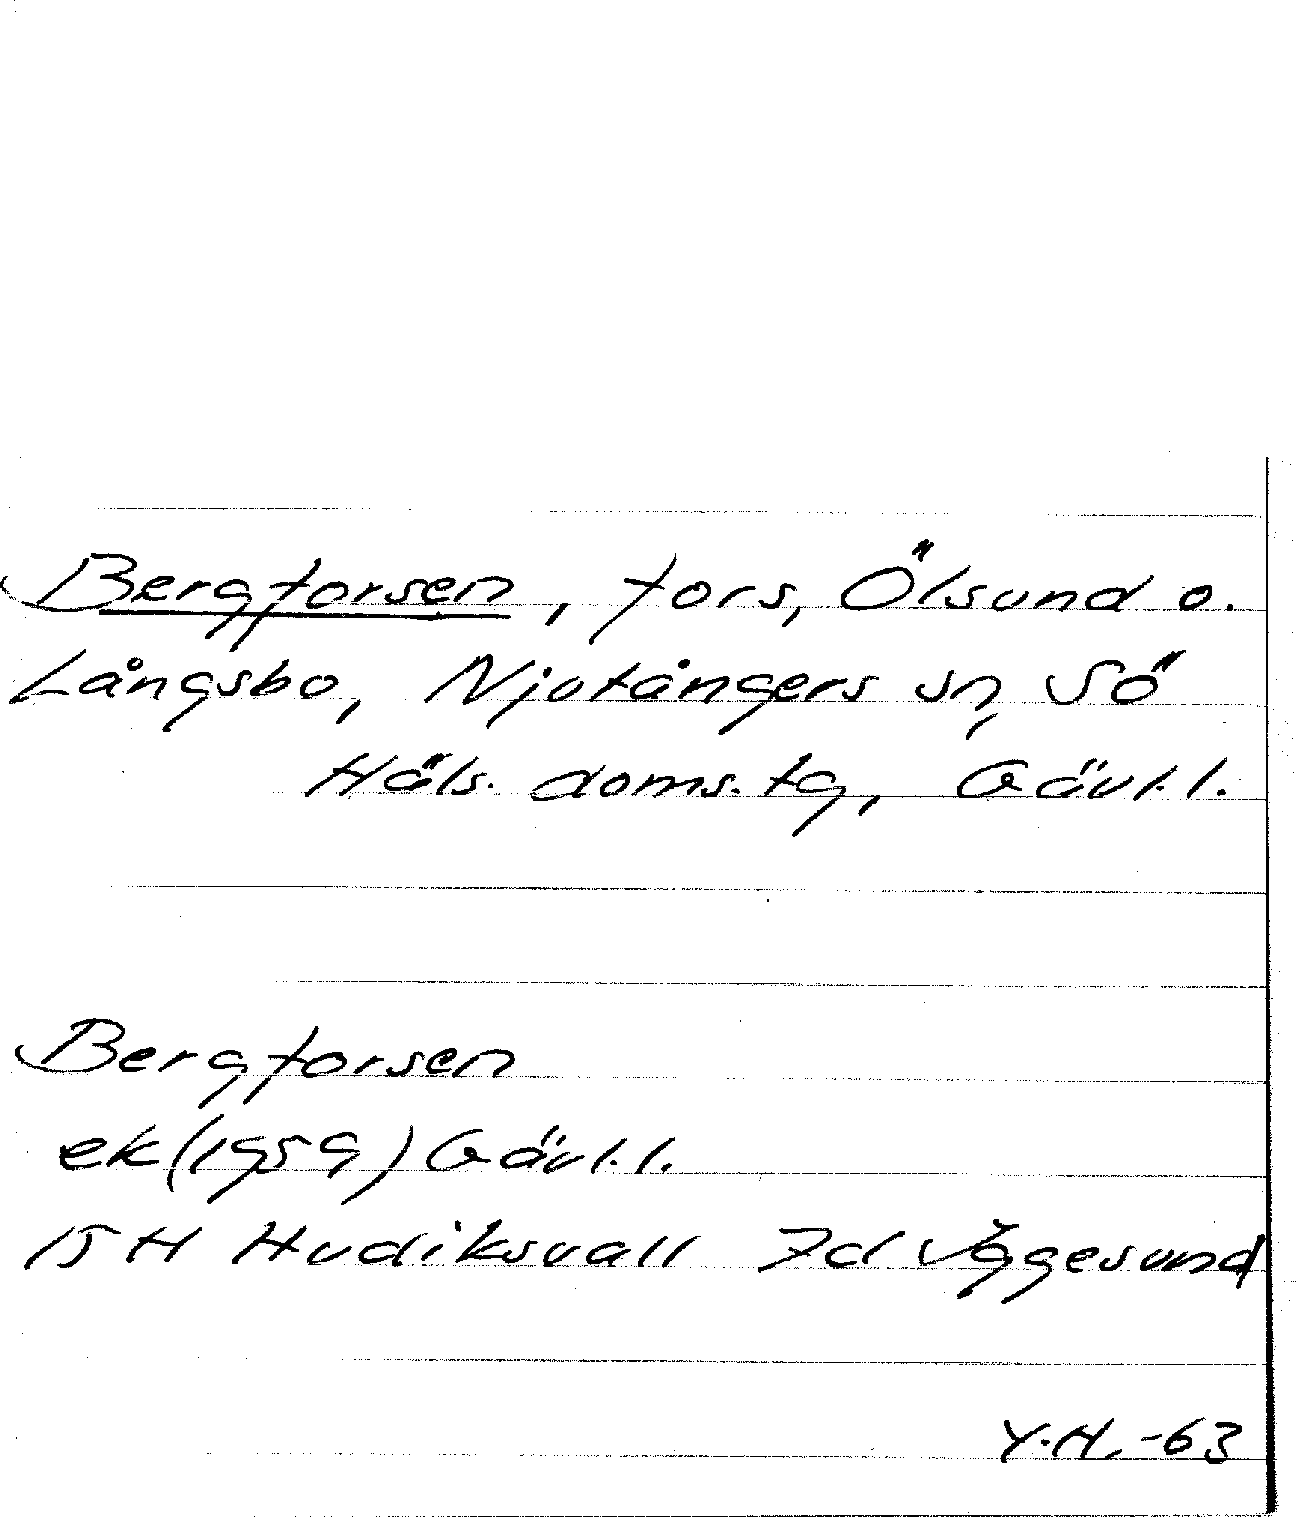 Bergforsen, fors, Ölsund o.
Långsbo, Njutångers sn, Sö
Häls. doms. tg, Gävl. l.
Bergforsen
ek (1959) Gävl. l.
15H Hudiksvall 7d Iggesund
Y.H. -63